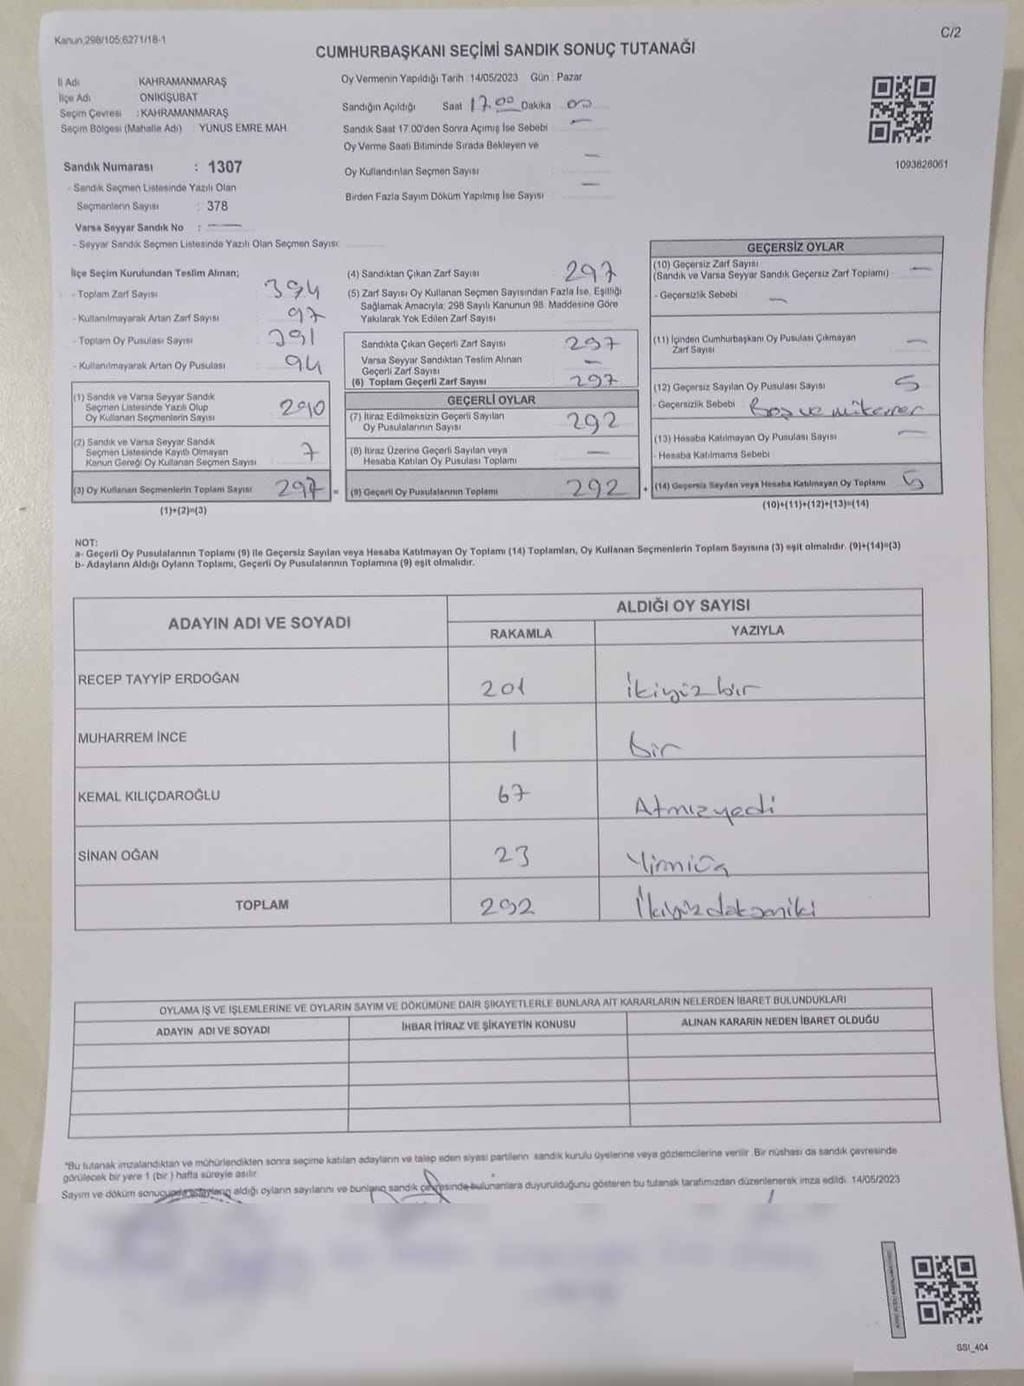 Kanun:298/105;6271/18-1
C/2
CUMHURBAŞKANI SEÇİMİ SANDIK SONUÇ TUTANAĞI
İl Adı KAHRAMANMARAŞ
İlçe Adı ONİKİŞUBAT
Seçim Çevresi : KAHRAMANMARAŞ
Seçim Bölgesi (Mahalle Adı) : YUNUS EMRE MAH.
Sandık Numarası : 1307
- Sandık Seçmen Listesinde Yazılı Olan
Seçmenlerin Sayısı : 378
Varsa Seyyar Sandık No : —
- Seyyar Sandık Seçmen Listesinde Yazılı Olan Seçmen Sayısı:
Oy Vermenin Yapıldığı Tarih : 14/05/2023 Gün : Pazar
Sandığın Açıldığı Saat 17.00 Dakika 00
Sandık Saat 17.00'den Sonra Açımış İse Sebebi —
Oy Verme Saati Bitiminde Sırada Bekleyen ve
Oy Kullandırılan Seçmen Sayısı —
Birden Fazla Sayım Döküm Yapılmış İse Sayısı —
1093628061
İlçe Seçim Kurulundan Teslim Alınan;
- Toplam Zarf Sayısı 394
- Kullanılmayarak Artan Zarf Sayısı 97
- Toplam Oy Pusulası Sayısı 391
- Kullanılmayarak Artan Oy Pusulası 94
(1) Sandık ve Varsa Seyyar Sandık
Seçmen Listesinde Yazılı Olup
Oy Kullanan Seçmenlerin Sayısı 290
(2) Sandık ve Varsa Seyyar Sandık
Seçmen Listesinde Kayıtlı Olmayan
Kanun Gereği Oy Kullanan Seçmen Sayısı 7
(3) Oy Kullanan Seçmenlerin Toplam Sayısı 297 =
(1)+(2)=(3)
(4) Sandıktan Çıkan Zarf Sayısı 297
(5) Zarf Sayısı Oy Kullanan Seçmen Sayısından Fazla İse, Eşitliği
Sağlamak Amacıyla; 298 Sayılı Kanunun 98. Maddesine Göre
Yakılarak Yok Edilen Zarf Sayısı
Sandıkta Çıkan Geçerli Zarf Sayısı 297
Varsa Seyyar Sandıktan Teslim Alınan
Geçerli Zarf Sayısı —
(6) Toplam Geçerli Zarf Sayısı 297
GEÇERLİ OYLAR
(7) İtiraz Edilmeksizin Geçerli Sayılan
Oy Pusulalarının Sayısı 292
(8) İtiraz Üzerine Geçerli Sayılan veya
Hesaba Katılan Oy Pusulası Toplamı —
(9) Geçerli Oy Pusulalarının Toplamı 292 +
GEÇERSİZ OYLAR
(10) Geçersiz Zarf Sayısı
(Sandık ve Varsa Seyyar Sandık Geçersiz Zarf Toplamı) —
- Geçersizlik Sebebi —
(11) İçinden Cumhurbaşkanı Oy Pusulası Çıkmayan
Zarf Sayısı —
(12) Geçersiz Sayılan Oy Pusulası Sayısı 5
- Geçersizlik Sebebi Boş ve mükerrer
(13) Hesaba Katılmayan Oy Pusulası Sayısı —
- Hesaba Katılmama Sebebi
(14) Geçersiz Sayılan veya Hesaba Katılmayan Oy Toplamı 5
(10)+(11)+(12)+(13)=(14)
NOT:
a- Geçerli Oy Pusulalarının Toplamı (9) ile Geçersiz Sayılan veya Hesaba Katılmayan Oy Toplamı (14) Toplamları, Oy Kullanan Seçmenlerin Toplam Sayısına (3) eşit olmalıdır. (9)+(14)=(3)
b- Adayların Aldığı Oyların Toplamı, Geçerli Oy Pusulalarının Toplamına (9) eşit olmalıdır.
ADAYIN ADI VE SOYADI ALDIĞI OY SAYISI
RAKAMLA YAZIYLA
RECEP TAYYİP ERDOĞAN 201 ikiyüzbir
MUHARREM İNCE 1 Bir
KEMAL KILIÇDAROĞLU 67 Atmışyedi
SİNAN OĞAN 23 Yirmiüç
TOPLAM 292 İkiyüzdoksaniki
OYLAMA İŞ VE İŞLEMLERİNE VE OYLARIN SAYIM VE DÖKÜMÜNE DAİR ŞİKAYETLERLE BUNLARA AİT KARARLARIN NELERDEN İBARET BULUNDUKLARI
ADAYIN ADI VE SOYADI İHBAR İTİRAZ VE ŞİKAYETİN KONUSU ALINAN KARARIN NEDEN İBARET OLDUĞU
"Bu tutanak imzalandıktan ve mühürlendikten sonra seçime katılan adayların ve talep eden siyasi partilerin sandık kurulu üyelerine veya gözlemcilerine verilir. Bir nüshası da sandık çevresinde
görülecek bir yere 1 (bir) hafta süreyle asılır.
Sayım ve döküm sonucunda adayların aldığı oyların sayılarını ve bunların sandık çevresinde bulunanlara duyurulduğunu gösteren bu tutanak tarafımızdan düzenlenerek imza edildi. 14/05/2023
SSI_404